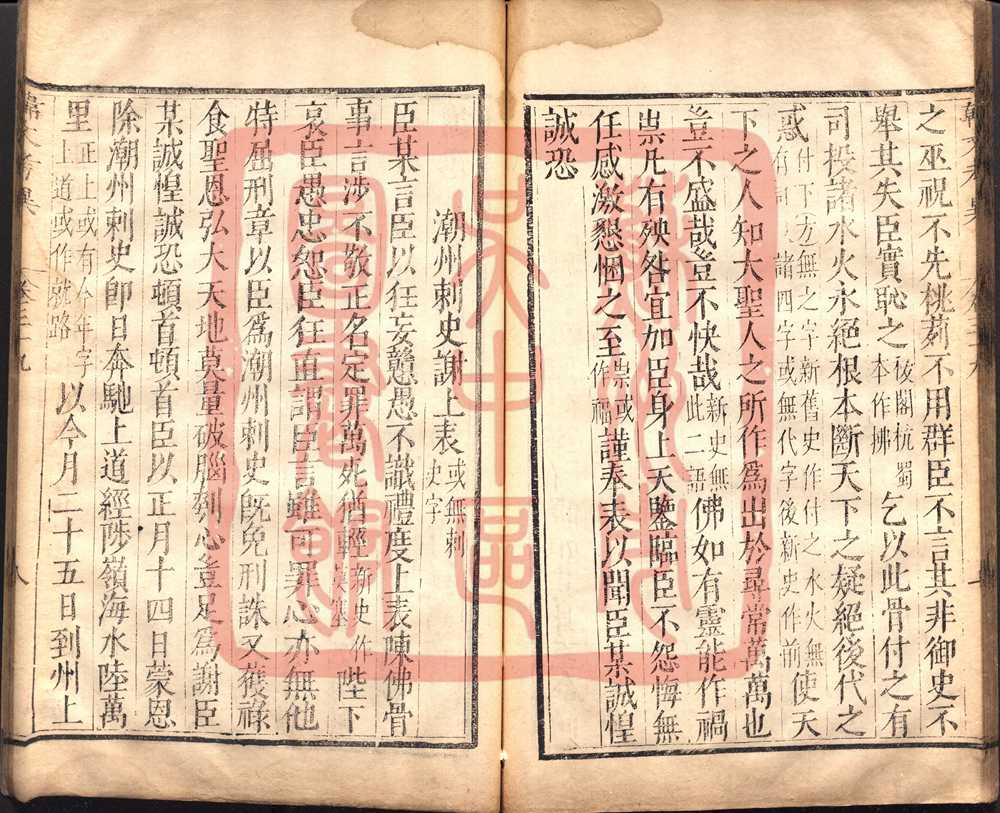 之巫祝不先桃茢不用群臣不言其非御史不
舉其失臣實恥之杭蜀本作拂乞以此骨付之有
司投諸水火永絕根本斷天下之疑絕後代之
惑付下方無之字新舊史作付之水火無諸四字或無代字後新史作前使天
下之人知大聖人之所作爲出於尋常萬萬也
豈不盛哉豈不快哉新史無此二語佛如有靈能作禍
祟凡有殃咎宜加臣身上天鑒臨臣不怨悔無
任感激懇悃之至祟或作禍謹奉表以聞臣某誠惶
誠恐
潮州刺史謝上表或無刺史字
臣某言臣以狂妄戇愚不識禮度上表陳佛骨
事言涉不敬正名定罪萬死猶輕新史作莫塞陛下
哀臣愚忠恕臣狂直謂臣言雖可罪心亦無他
特屈刑章以臣爲潮州刺史旣免刑誅又獲祿
食聖恩弘大天地莫量破腦刳心豈足爲謝臣
某誠惶誠恐頓首頓首臣以正月十四日蒙恩
除潮州刺史卽日奔馳上道經陟嶺海水陸萬
里正上或有今年字上道或作就路以今月二十五日到州上
八